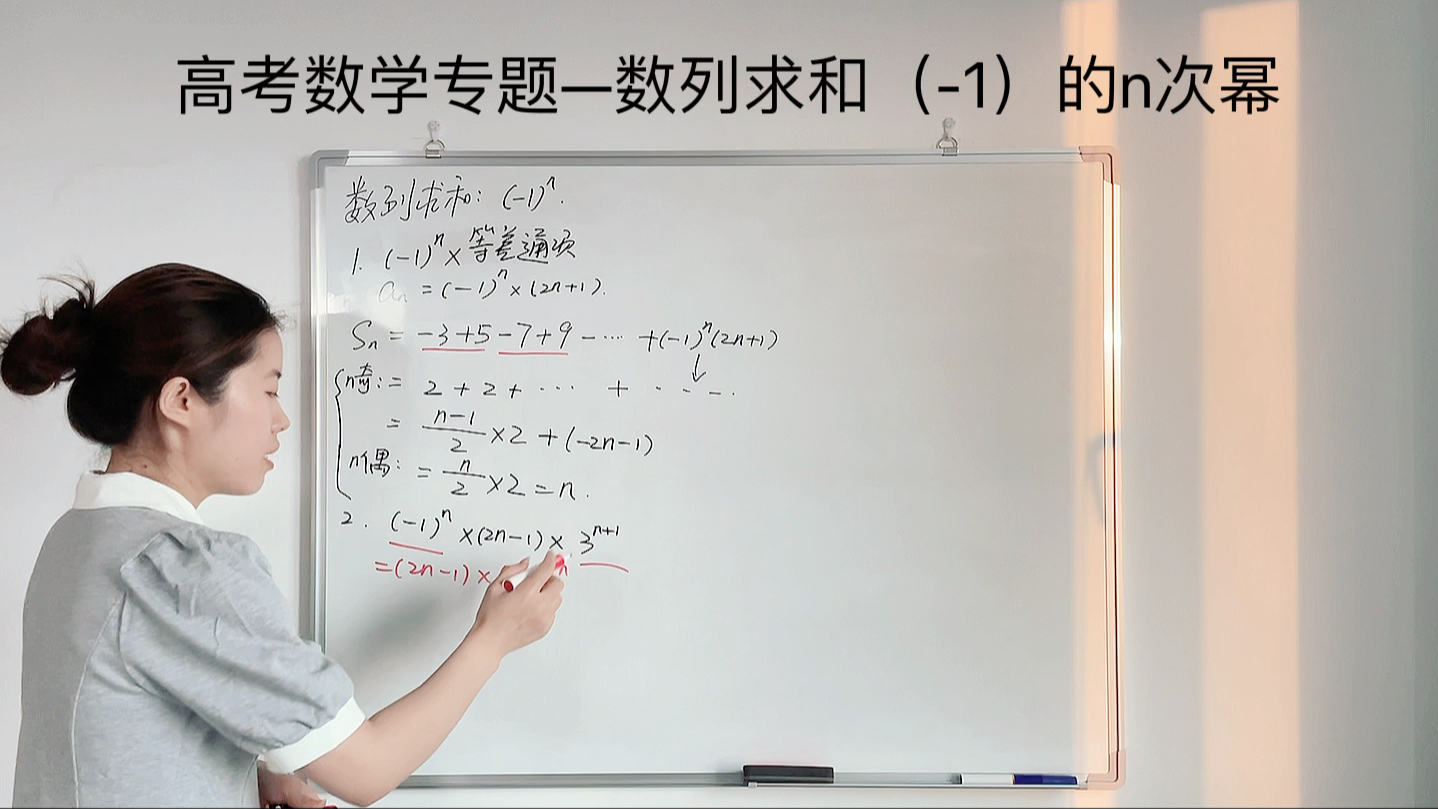 高考数学专题—数列求和（-1）的n次幂
数列求和: (-1)ⁿ.
1. (-1)ⁿ × 等差通项
aₙ = (-1)ⁿ × (2n+1).
Sₙ = -3+5-7+9-… +(-1)ⁿ(2n+1)
n奇: = 2 + 2 + … + ….
= (n-1)/2 ×2 + (-2n-1)
n偶: = n/2 ×2 = n.
2. (-1)ⁿ ×(2n-1)× 3ⁿ⁺¹
=(2n-1)×